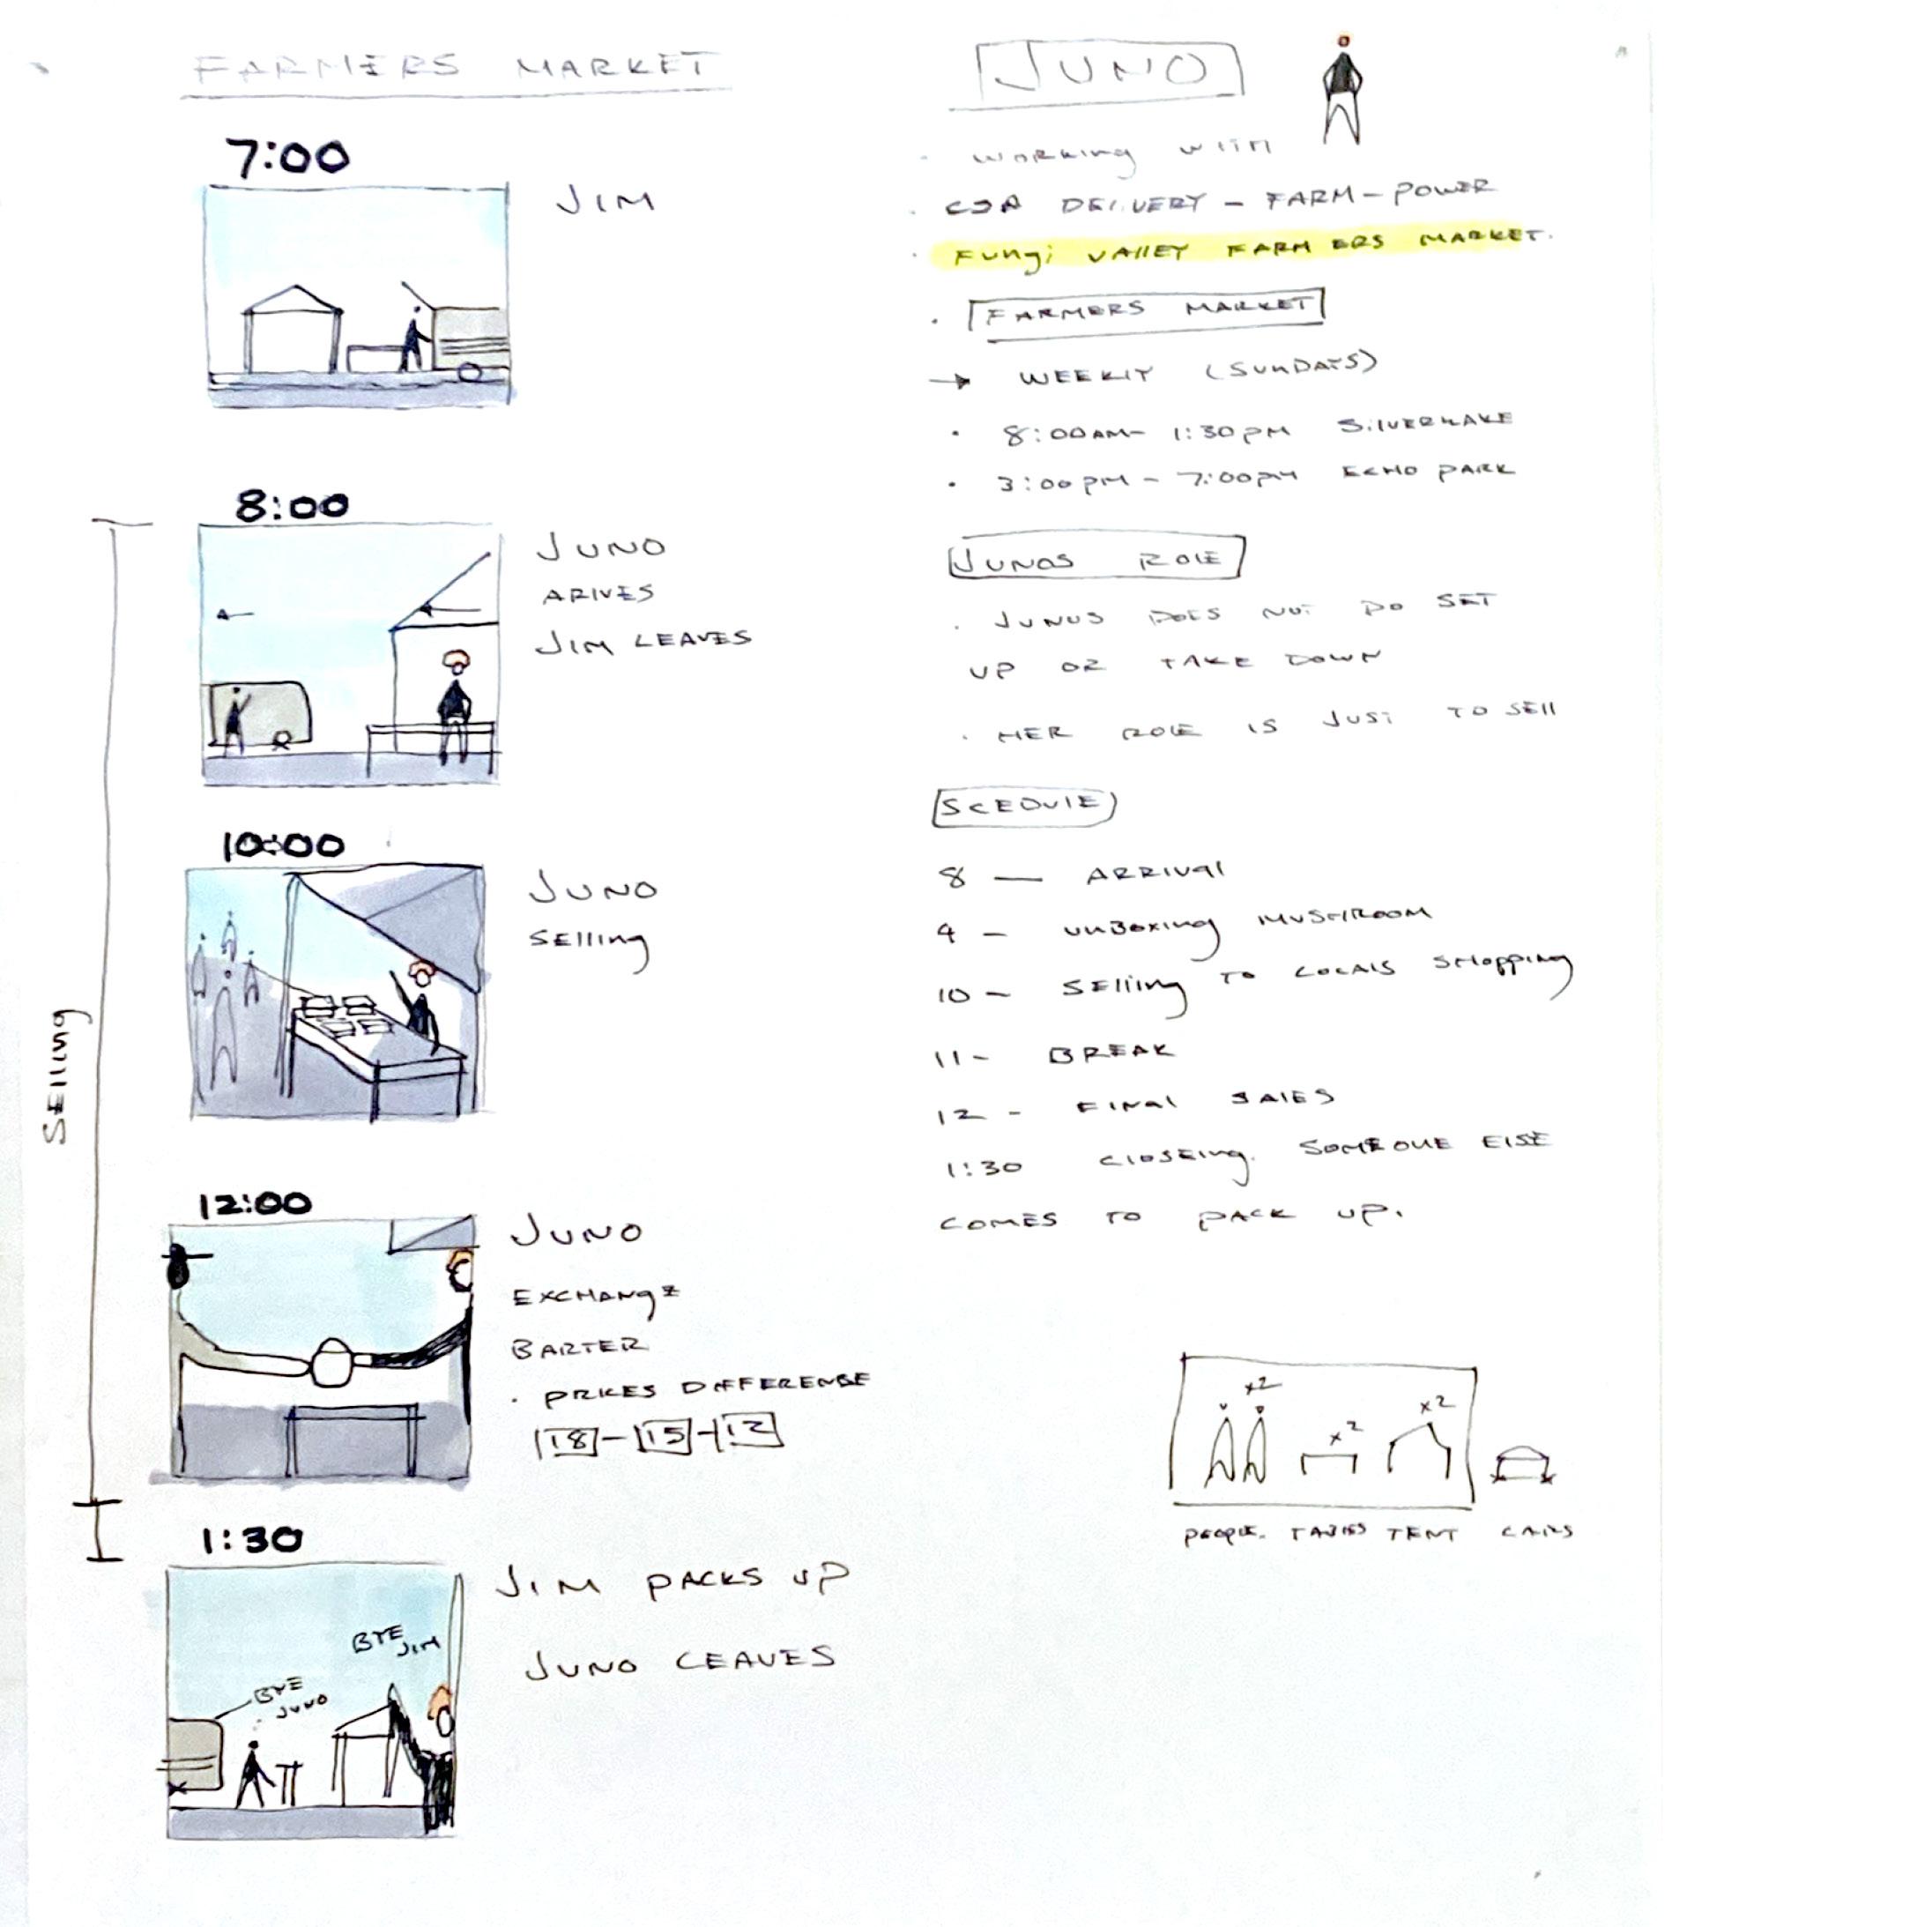 FARMERS MARKET
7:00
JIM
8:00
JUNO
ARIVES
JIM LEAVES
10:00
JUNO
SELLING
SELLING
12:00
JUNO
EXCHANGE
BARTER
• PRICES DIFFERENSE
18 - 15 - 12
1:30
JIM PACKS UP
JUNO LEAVES
BYE JIM
BYE JUNO
JUNO
• WORKING WITH
• CSA DELIVERY - FARM - POWER
• FUNGI VALLEY FARMERS MARKET.
• FARMERS MARKET
→ WEEKLY (SUNDAYS)
• 8:00AM- 1:30PM SILVERLAKE
• 3:00PM - 7:00PM ECHO PARK
JUNOS ROLE
• JUNOS DOES NOT DO SET
UP OR TAKE DOWN
• HER ROLE IS JUST TO SELL
SCEDULE
8 — ARRIVAL
9 - UNBOXING MUSHROOM
10 - SELLING TO LOCALS SHOPPING
11 - BREAK
12 - FINAL SALES
1:30 CLOSEING. SOMEONE ELSE
COMES TO PACK UP.
x2 x2 x2
PEOPLE. TABLES TENT CARS